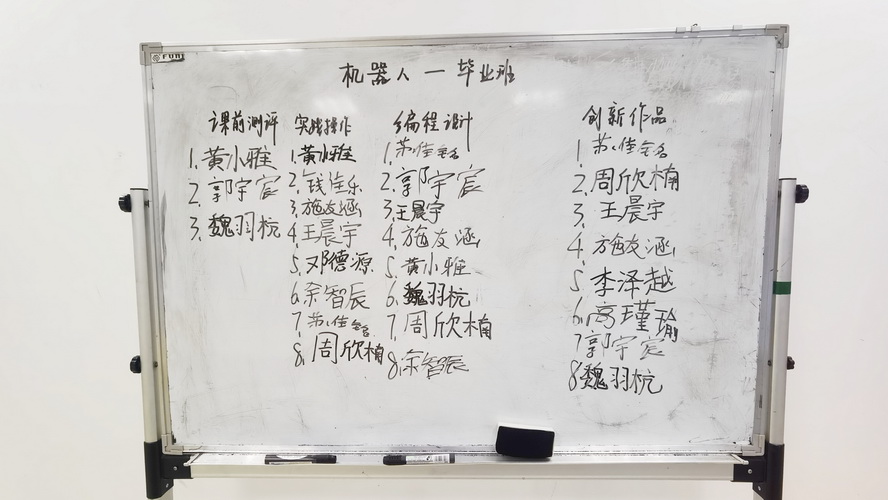 FUNI
机器人一毕业班
课前测评
1.黄小雅
2.郭宇宸
3.魏羽杭
实践操作
1.黄小雅
2.钱佳乐
3.施友涵
4.王晨宇
5.邓德源
6.余智辰
7.苏佳
8.周欣楠
编程设计
1.苏佳
2.郭宇宸
3.王晨宇
4.施友涵
5.黄小雅
6.魏羽杭
7.周欣楠
8.余智辰
创新作品
1.苏佳
2.周欣楠
3.王晨宇
4.施友涵
5.李泽越
6.高瑾瑜
7.郭宇宸
8.魏羽杭